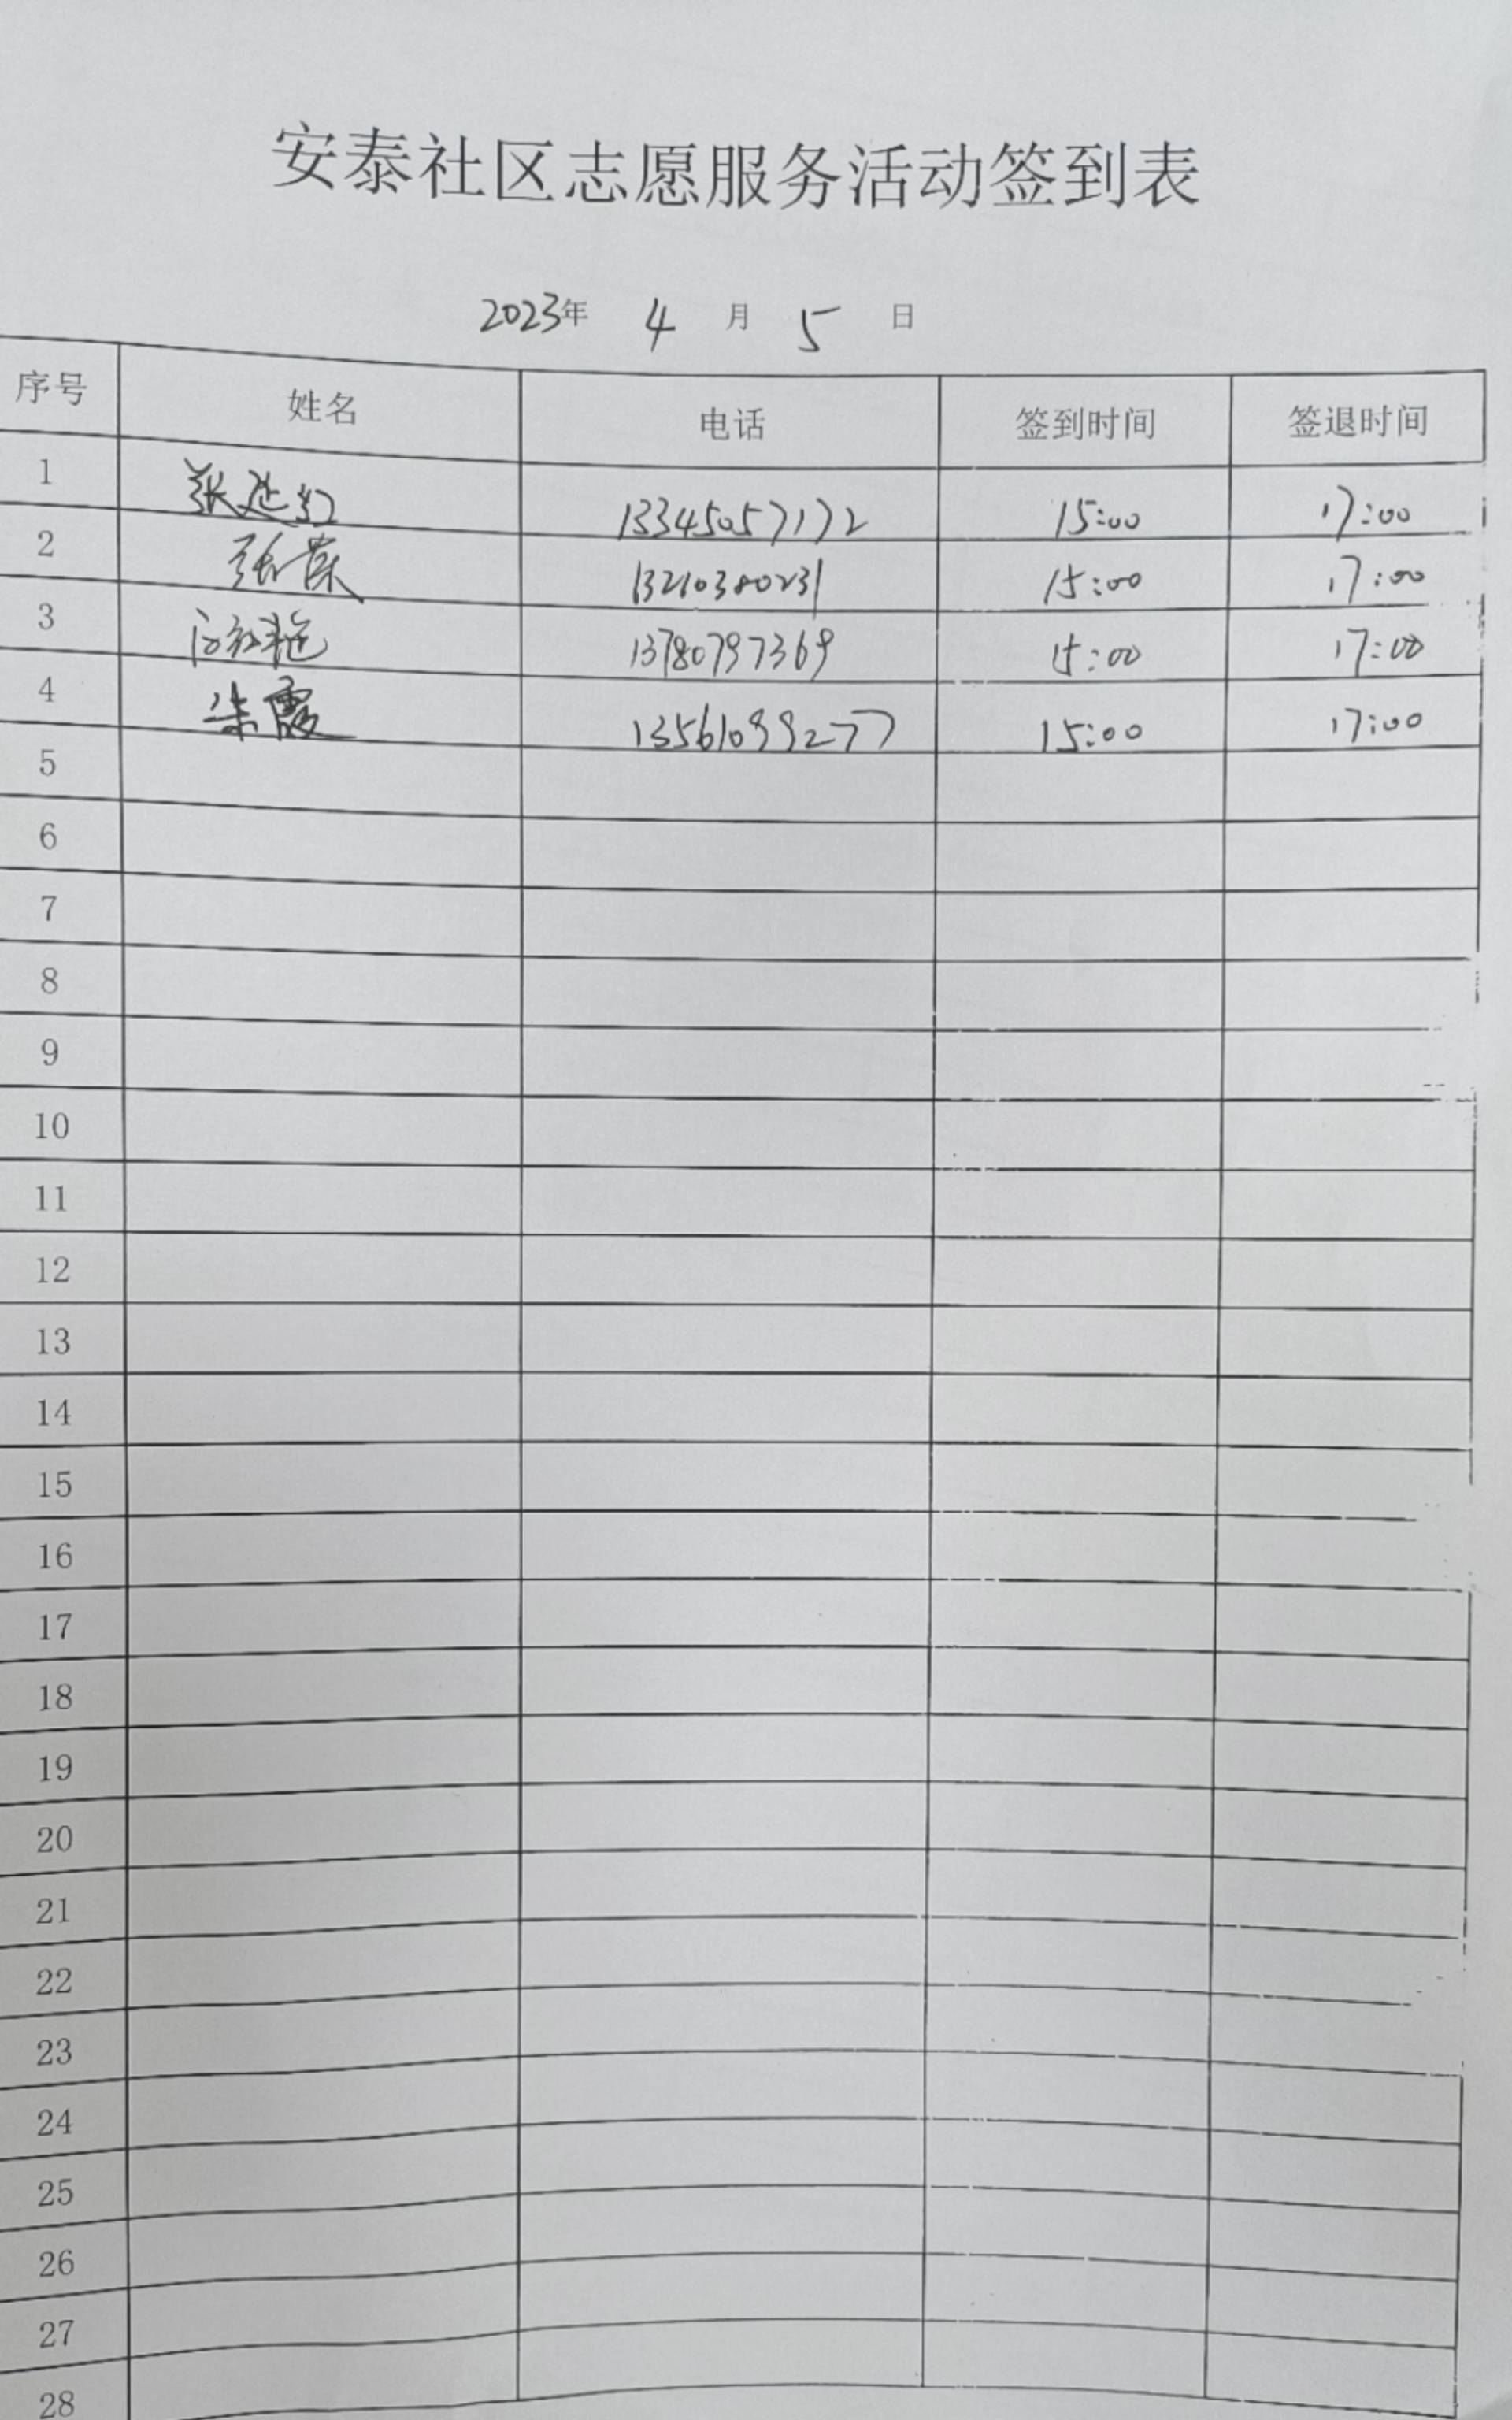 安泰社区志愿服务活动签到表
2023年 4 月 5 日
序号 姓名 电话 签到时间 签退时间
1 张延红 13345057172 15:00 17:00
2 张荣 13210380231 15:00 17:00
3 13780797369 15:00 17:00
4 朱霞 13561099277 15:00 17:00
5
6
7
8
9
10
11
12
13
14
15
16
17
18
19
20
21
22
23
24
25
26
27
28